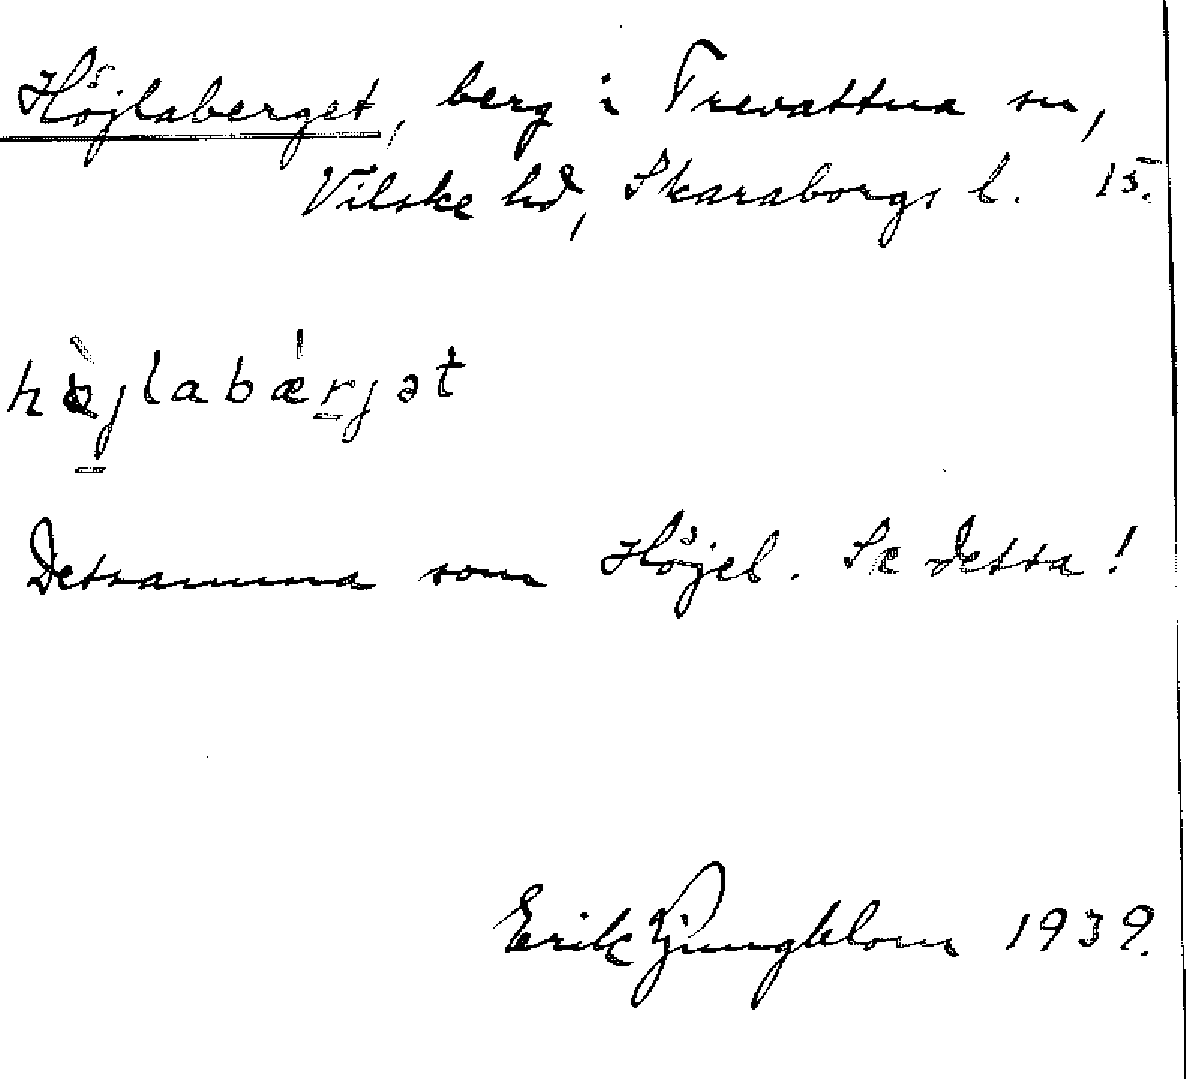 Höjlaberget, berg i Trevattna sn,
Vilske hd, Skaraborgs l. 15.
hø̀jlabæ̍rjət
Detsamma som Höjel. Se detta!
Erik Ljungblom 1939.